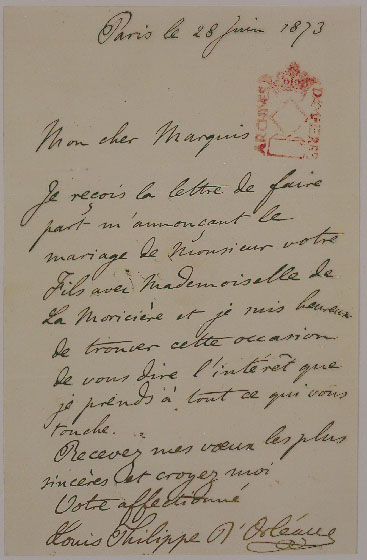 Paris le 28 Juin 1873
ARCHIVES
Mon cher Marquis
Je reçois la lettre de faire
part m'annonçant le
mariage de Monsieur votre
Fils avec Mademoiselle de
La Moricière et je suis heureux
de trouver cette occasion
de vous dire l'intérêt que
je prends à tout ce qui vous
touche.
Recevez mes vœux les plus
sincères et croyez moi
Votre affectionné
Louis Philippe D'Orléans